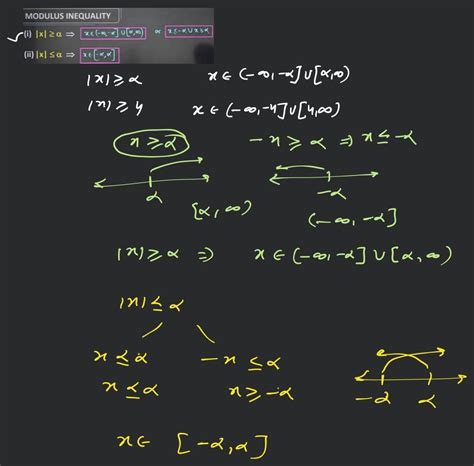 MODULUS INEQUALITY
(i) |x| ≥ α ⇒ x ∈ (-∞, -α] ∪ [α, ∞) x ≤ -α ∪ x ≥ α
(ii) |x| ≤ α ⇒ x ∈ [-α, α]
|x| ≥ α x ∈ (-∞, -α] ∪ [α, ∞)
|x| ≥ 4 x ∈ (-∞, -4] ∪ [4, ∞)
x ≥ α -x ≥ α ⇒ x ≤ -α
α -α
[α, ∞) (-∞, -α]
|x| ≥ α ⇒ x ∈ (-∞, -α] ∪ [α, ∞)
|x| ≤ α
x ≤ α -x ≤ α
x ≤ α x ≥ -α
-α α
x ∈ [-α, α]